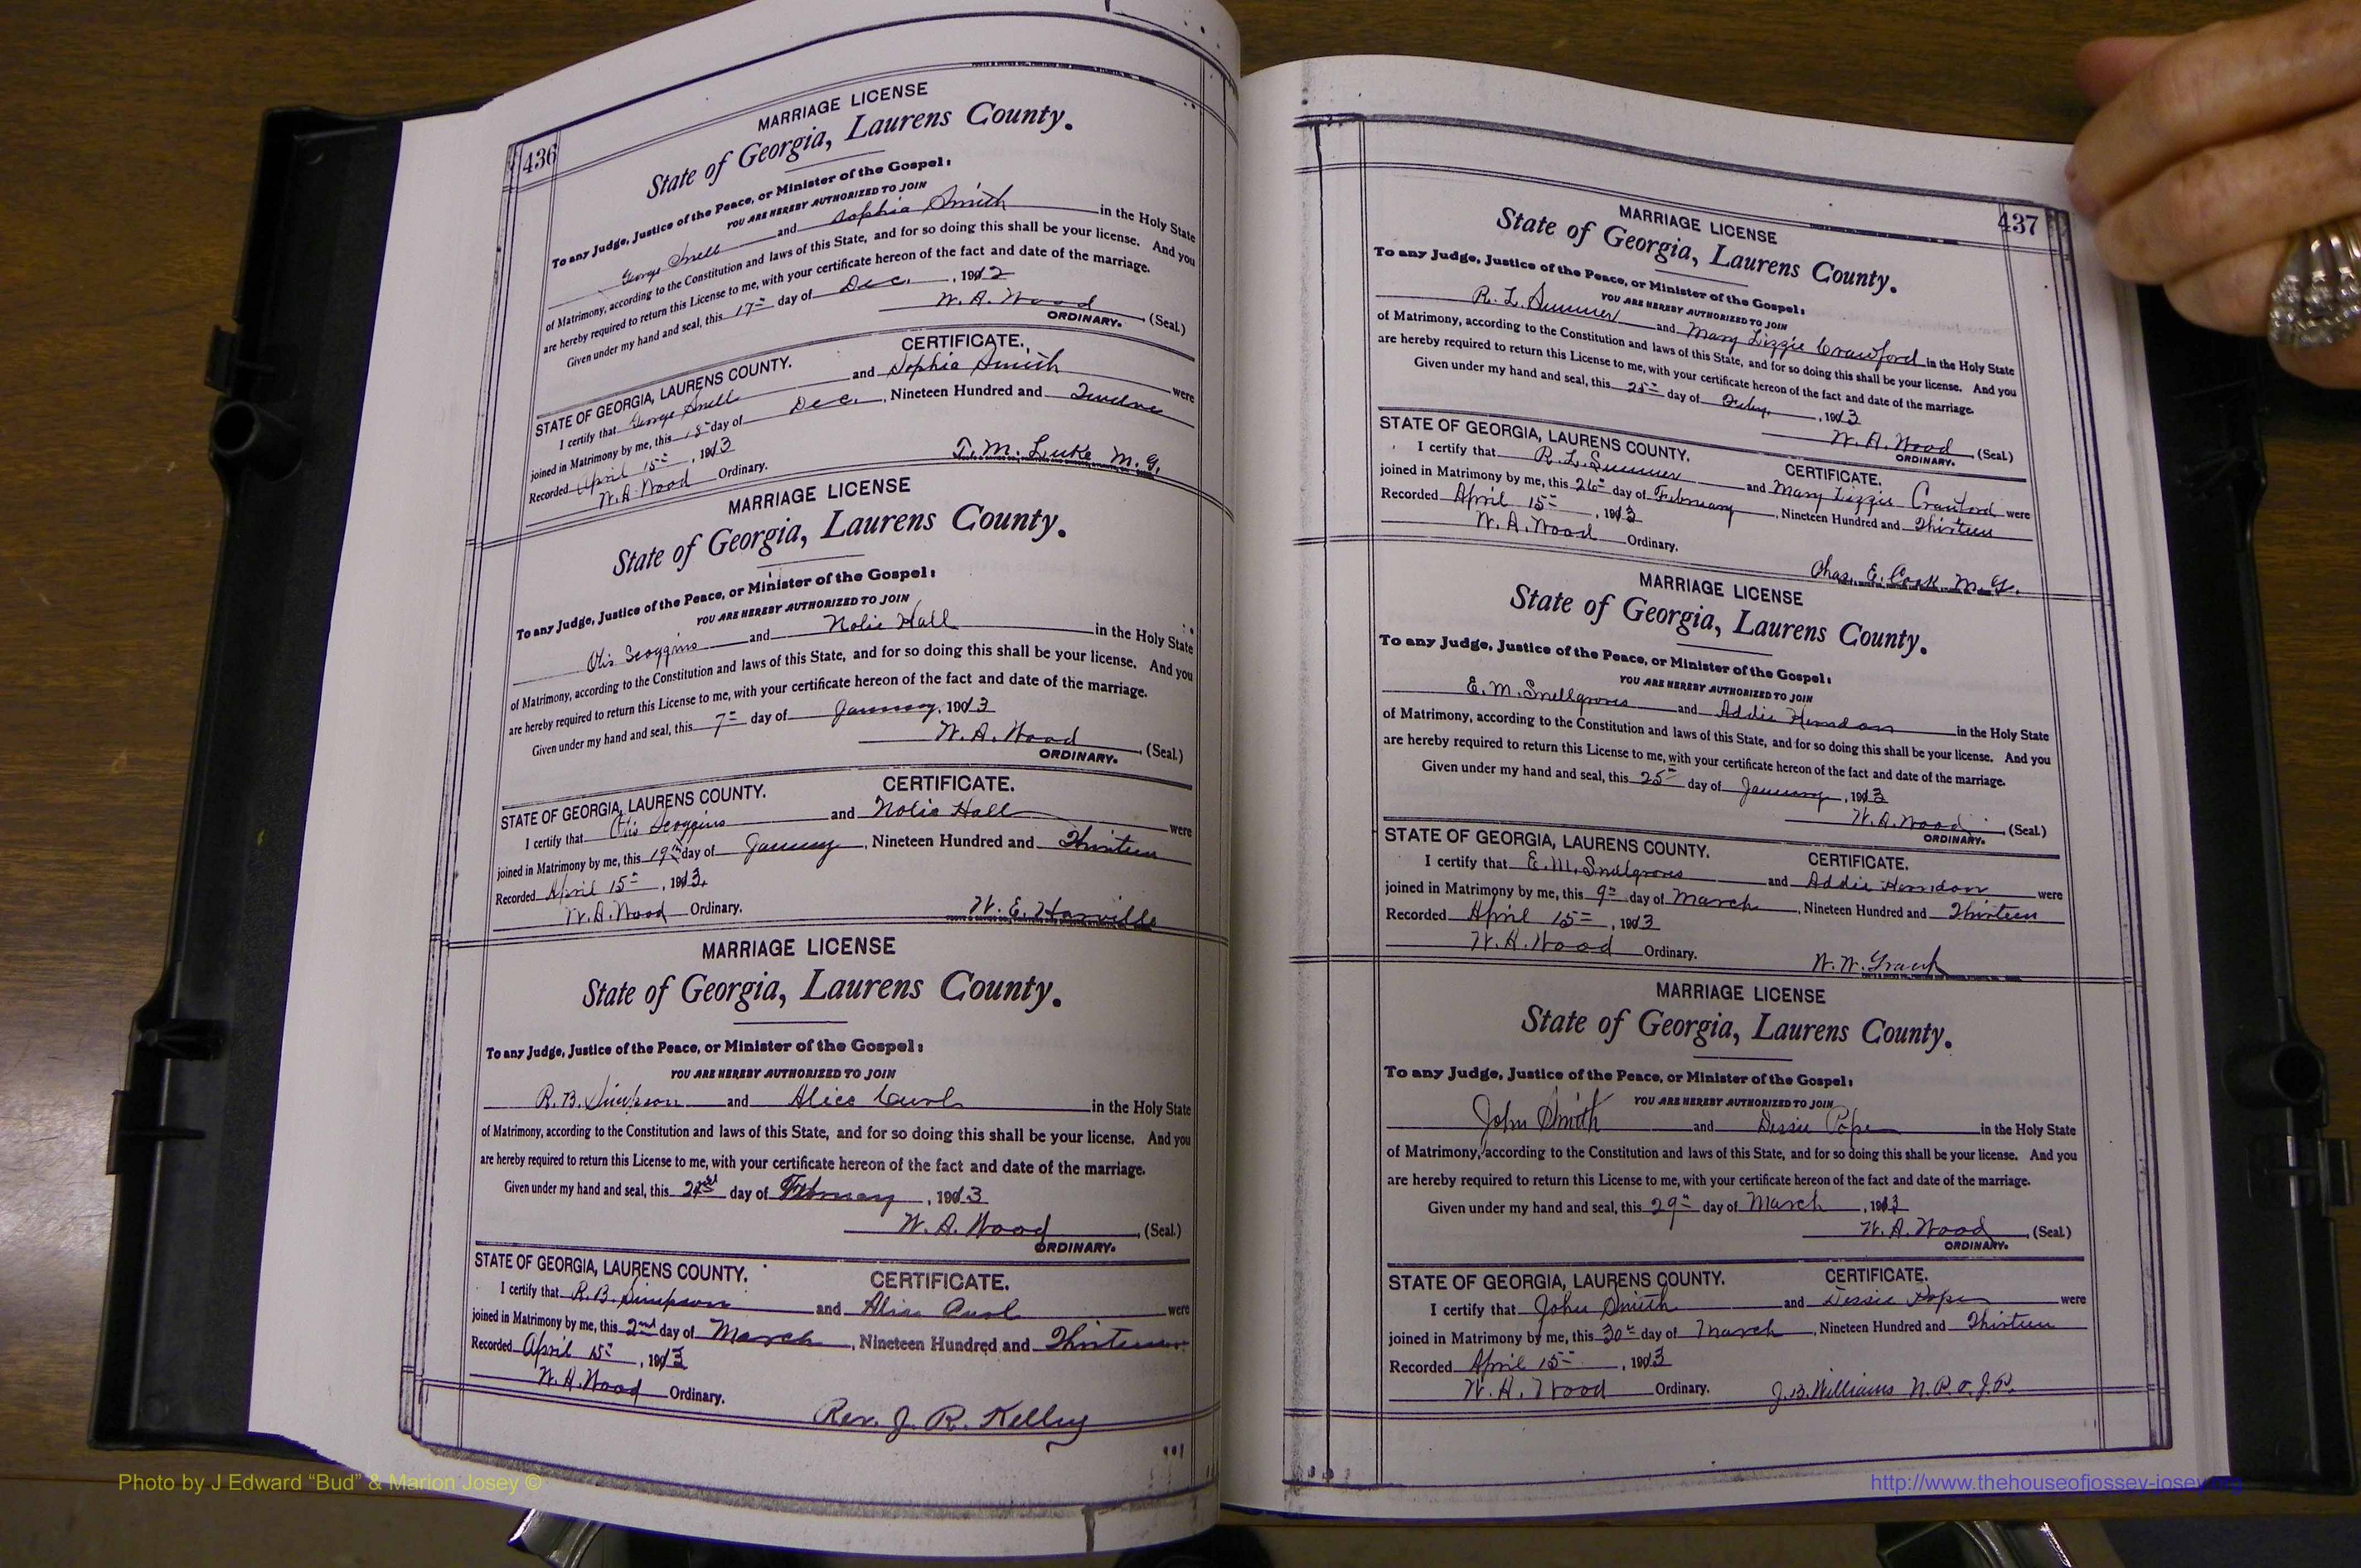 436
MARRIAGE LICENSE
State of Georgia, Laurens County.
To any Judge, Justice of the Peace, or Minister of the Gospel:
YOU ARE HEREBY AUTHORIZED TO JOIN
George Snell and Sophia Smith in the Holy State
of Matrimony, according to the Constitution and laws of this State, and for so doing this shall be your license. And you
are hereby required to return this License to me, with your certificate hereon of the fact and date of the marriage.
Given under my hand and seal, this 17th day of Dec. , 1912
W. A. Wood (Seal.)
ORDINARY.
STATE OF GEORGIA, LAURENS COUNTY. CERTIFICATE.
I certify that George Snell and Sophia Smith were
joined in Matrimony by me, this 18th day of Dec. , Nineteen Hundred and Twelve
Recorded April 15th , 1913
W. A. Wood Ordinary.
T. M. Luke M. G.
MARRIAGE LICENSE
State of Georgia, Laurens County.
To any Judge, Justice of the Peace, or Minister of the Gospel:
YOU ARE HEREBY AUTHORIZED TO JOIN
Otis Scoggins and Nolie Hall in the Holy State
of Matrimony, according to the Constitution and laws of this State, and for so doing this shall be your license. And you
are hereby required to return this License to me, with your certificate hereon of the fact and date of the marriage.
Given under my hand and seal, this 7th day of January, 1913
W. A. Wood (Seal.)
ORDINARY.
STATE OF GEORGIA, LAURENS COUNTY. CERTIFICATE.
I certify that Otis Scoggins and Nolie Hall were
joined in Matrimony by me, this 19th day of January , Nineteen Hundred and Thirteen
Recorded April 15th , 1913.
W. A. Wood Ordinary.
W. E. Harville
MARRIAGE LICENSE
State of Georgia, Laurens County.
To any Judge, Justice of the Peace, or Minister of the Gospel:
YOU ARE HEREBY AUTHORIZED TO JOIN
R. B. Simpson and Alice Curl in the Holy State
of Matrimony, according to the Constitution and laws of this State, and for so doing this shall be your license. And you
are hereby required to return this License to me, with your certificate hereon of the fact and date of the marriage.
Given under my hand and seal, this day of February , 1913
W. A. Wood (Seal.)
ORDINARY.
STATE OF GEORGIA, LAURENS COUNTY. CERTIFICATE.
I certify that R. B. Simpson and Alice Curl were
joined in Matrimony by me, this 2nd day of March , Nineteen Hundred and Thirteen
Recorded April 15th , 1913
W. A. Wood Ordinary.
Rev. J. R. Kelley
437
MARRIAGE LICENSE
State of Georgia, Laurens County.
To any Judge, Justice of the Peace, or Minister of the Gospel:
YOU ARE HEREBY AUTHORIZED TO JOIN
R. L. Summer and Mary Lizzie Crawford in the Holy State
of Matrimony, according to the Constitution and laws of this State, and for so doing this shall be your license. And you
are hereby required to return this License to me, with your certificate hereon of the fact and date of the marriage.
Given under my hand and seal, this 25th day of Feby. , 1913
W. A. Wood (Seal.)
ORDINARY.
STATE OF GEORGIA, LAURENS COUNTY. CERTIFICATE.
I certify that R. L. Summer and Mary Lizzie Crawford were
joined in Matrimony by me, this 26th day of February , Nineteen Hundred and Thirteen
Recorded April 15th , 1913
W. A. Wood Ordinary.
Chas. E. Cook M. G.
MARRIAGE LICENSE
State of Georgia, Laurens County.
To any Judge, Justice of the Peace, or Minister of the Gospel:
YOU ARE HEREBY AUTHORIZED TO JOIN
E. M. Snellgroves and Addie Herndon in the Holy State
of Matrimony, according to the Constitution and laws of this State, and for so doing this shall be your license. And you
are hereby required to return this License to me, with your certificate hereon of the fact and date of the marriage.
Given under my hand and seal, this 25th day of January , 1913
W. A. Wood (Seal.)
ORDINARY.
STATE OF GEORGIA, LAURENS COUNTY. CERTIFICATE.
I certify that E. M. Snelgroves and Addie Herndon were
joined in Matrimony by me, this 9th day of March , Nineteen Hundred and Thirteen
Recorded April 15th , 1913
W. A. Wood Ordinary.
W. W.
MARRIAGE LICENSE
State of Georgia, Laurens County.
To any Judge, Justice of the Peace, or Minister of the Gospel:
YOU ARE HEREBY AUTHORIZED TO JOIN
John Smith and Dessie Pope in the Holy State
of Matrimony, according to the Constitution and laws of this State, and for so doing this shall be your license. And you
are hereby required to return this License to me, with your certificate hereon of the fact and date of the marriage.
Given under my hand and seal, this 29th day of March , 1913
W. A. Wood (Seal.)
ORDINARY.
STATE OF GEORGIA, LAURENS COUNTY. CERTIFICATE.
I certify that John Smith and Dessie Pope were
joined in Matrimony by me, this 30th day of March , Nineteen Hundred and Thirteen
Recorded April 15th , 1913
W. A. Wood Ordinary.
J. B. Williams N. P. & J. P.
Photo by J Edward “Bud” & Marion Josey ©
http://www.thehouseofjossey-josey.org